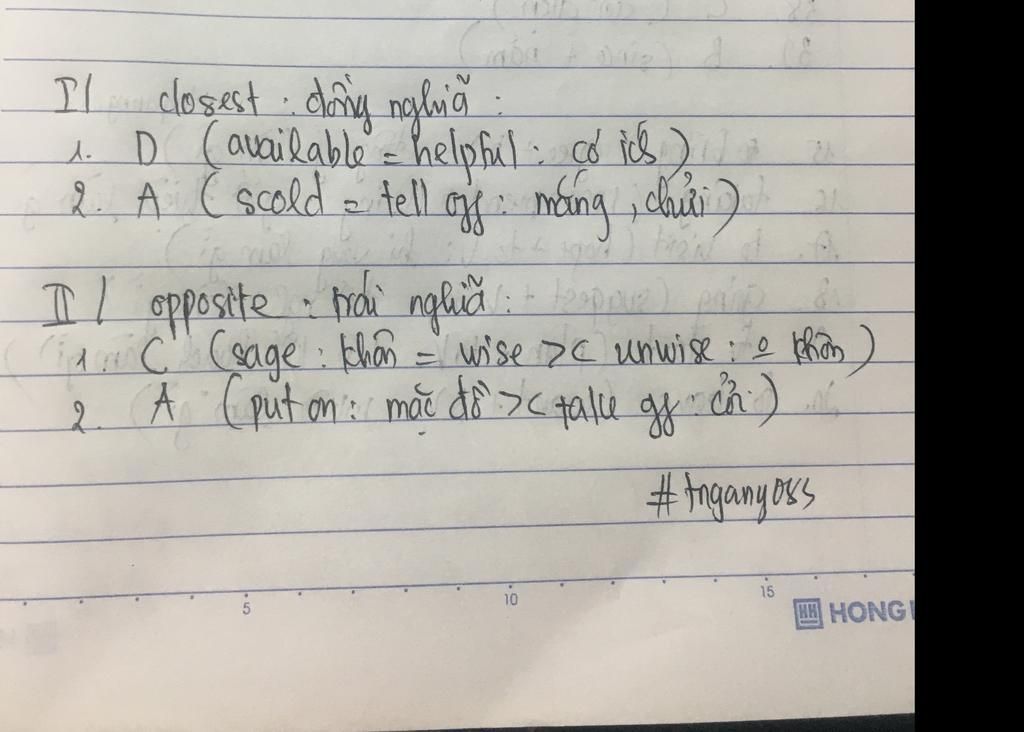 I/ closest : đồng nghĩa :
1. D (available = helpful : có ích)
2. A (scold = tell off : mắng, chửi)
II/ opposite : trái nghĩa :
1. C (sage : khôn = wise >< unwise : o khôn)
2. A (put on : mặc đồ >< take off : cởi)
#tngany088
5 10 15
HH HONG